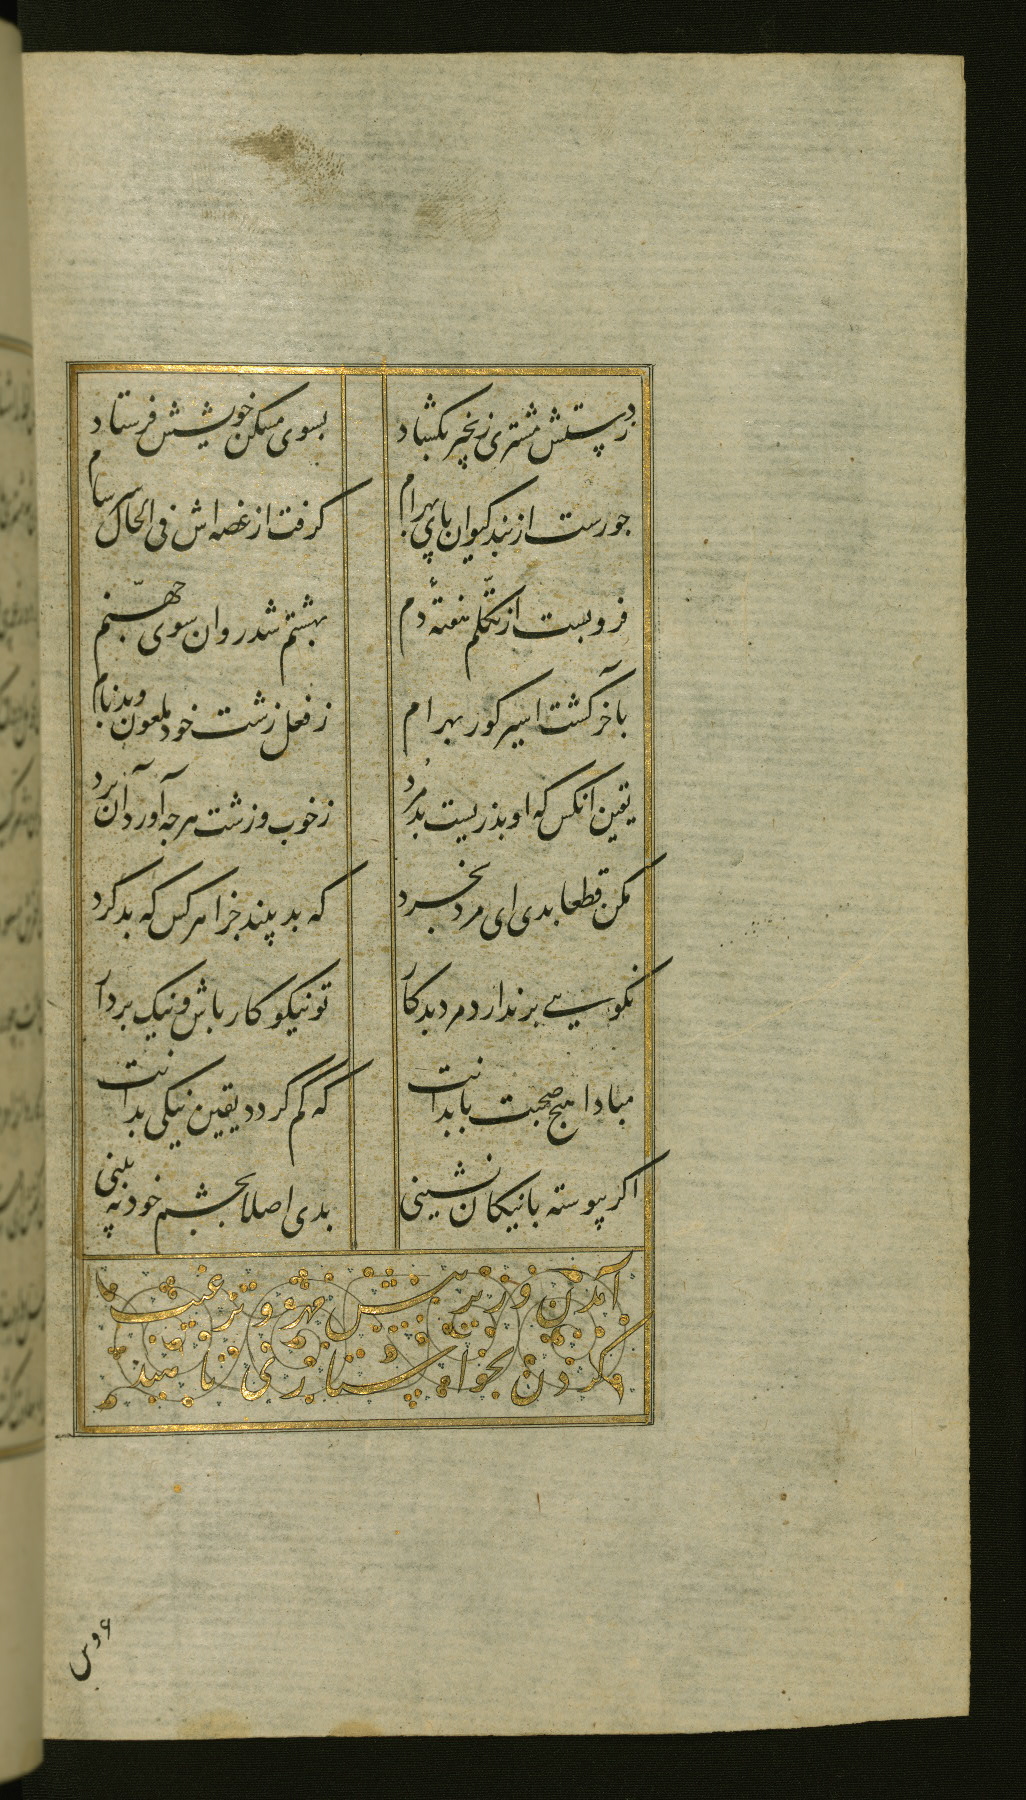 ز دستش مشتری زنجیر بکشاد بسوی مسکن خویشش فرستاد
جو رست از بند کیوان باپی بهرام کرفت از غصه اش فی الحال سرسام
فرو بست از تکلم هفتهٔ دم بهشتم شد روان سوی جهنم
بآخر گشت اسیر کور بهرام ز فعل زشت خود ملعون و بدنام
یقین آنکس که او بد زیست بد مُرد ز خوب و زشت هر جه آورد آن برد
مکن قطعا بدی ای مرد بخرد که بد بیند جزا هر کس که بد کرد
نکویی بر ندارد مرد بدکار تو نیکو کار باش و نیک بردار
مبادا هیچ صحبت با بدانت که گم گردد یقین نیکی بدانت
اکر پیوسته با نیکان نشینی بدی اصلا بچشم خود نه بینی
آمدن وزیر پیش مهر و ترغیب
کردن بخواستاری ناهید